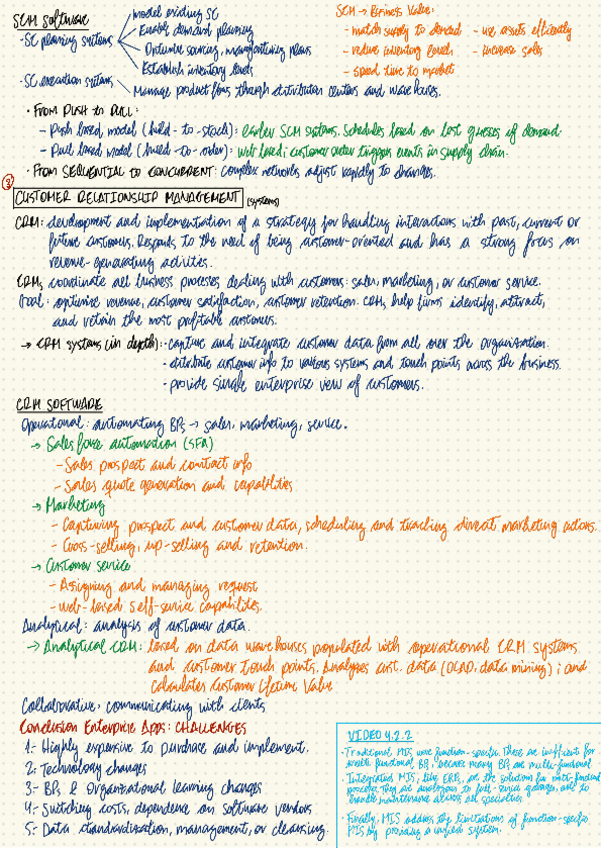 SCM Software
- SC planning systems
Model existing SC
Enable demand planning
Optimize sourcing, manufacturing plans
Establish inventory levels
- SC execution systems
Manage product flows through distribution centers and warehouses.
SCM → Business Value:
- match supply to demand - use assets efficiently
- reduce inventory levels - increase sales
- speed time to market
• From PUSH to PULL:
- Push based model (build - to - stock): earlier SCM systems. Schedules based on best guesses of demand.
- Pull based model (build - to - order): web based; customer order triggers events in supply chain.
• From SEQUENTIAL to CONCURRENT: Complex networks adjust rapidly to changes.
CUSTOMER RELATIONSHIP MANAGEMENT (systems)
CRM: development and implementation of a strategy for handling interactions with past, current or
future customers. Responds to the need of being customer-oriented and has a strong focus on
revenue-generating activities.
CRMs coordinate all business processes dealing with customers: sales, marketing, or customer service.
Goal: optimize revenue, customer satisfaction, customer retention. CRMs help firms identify, attract,
and retain the most profitable customers.
→ CRM systems (in depth): - capture and integrate customer data from all over the organization.
- distribute customer info to various systems and touch points across the business.
- provide single enterprise view of customers.
CRM SOFTWARE
Operational: automating BPs → sales, marketing, service.
→ Sales force automation (SFA)
- Sales prospect and contact info
- Sales quote generation and capabilities
→ Marketing
- Capturing prospect and customer data, scheduling and tracking direct marketing actions.
- Cross-selling, up-selling and retention.
→ Customer service
- Assigning and managing request
- web-based self-service capabilities.
Analytical: analysis of customer data.
→ Analytical CRM: based on data warehouses populated with operational CRM systems
and customer touch points. Analyses cust. data (OLAP, data mining); and
Calculates Customer Lifetime Value
Collaborative: communicating with clients
Conclusion Enterprise Apps: CHALLENGES
1.- Highly expensive to purchase and implement.
2.- Technology changes
3.- BPs & Organizational learning changes
4.- Switching costs, dependence on software vendors
5.- Data standardization, management, or cleansing.
VIDEO 4.2.2
• Traditional MIS were function-specific. These are inefficient for
cross functional BPs, because many BPs are multi-functional
• Integrated MIS, like ERPs, are the solution for multi-functional
process. They are analogous to full-service garages, able to
maintenance across all specialties
• Finally, MIS address the limitations of function-specific
MIS by providing a unified system.